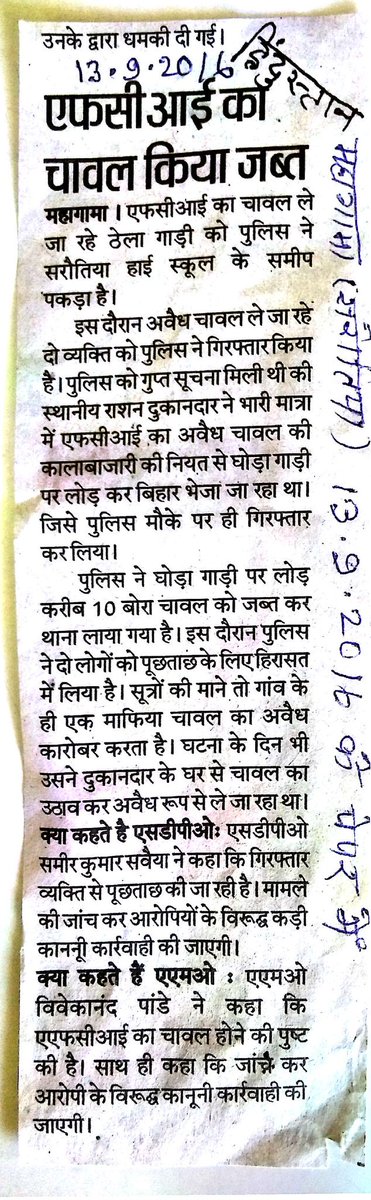 उनके द्वारा धमकी दी गई।
13.9.2016 हिंदुस्तान
एफसीआई का
चावल किया जब्त
महागामा। एफसीआई का चावल ले
जा रहे ठेला गाड़ी को पुलिस ने
सरौतिया हाई स्कूल के समीप
पकड़ा है।
इस दौरान अवैध चावल ले जा रहे
दो व्यक्ति को पुलिस ने गिरफ्तार किया
है। पुलिस को गुप्त सूचना मिली थी की
स्थानीय राशन दुकानदार ने भारी मात्रा
में एफसीआई का अवैध चावल की
कालाबाजारी की नियत से घोड़ा गाड़ी
पर लोड कर बिहार भेजा जा रहा था।
जिसे पुलिस मौके पर ही गिरफ्तार
कर लिया।
पुलिस ने घोड़ा गाड़ी पर लोड
करीब 10 बोरा चावल को जब्त कर
थाना लाया गया है। इस दौरान पुलिस
ने दो लोगों को पूछताछ के लिए हिरासत
में लिया है। सूत्रों की माने तो गांव के
ही एक माफिया चावल का अवैध
कारोबर करता है। घटना के दिन भी
उसने दुकानदार के घर से चावल का
उठाव कर अवैध रूप से ले जा रहा था।
क्या कहते है एसडीपीओः एसडीपीओ
समीर कुमार सवैया ने कहा कि गिरफ्तार
व्यक्ति से पूछताछ की जा रही है। मामले
की जांच कर आरोपियों के विरूद्ध कड़ी
काननी कार्रवाही की जाएगी।
क्या कहते हैं एएमओ : एएमओ
विवेकानंद पांडे ने कहा कि
एएफसीआई का चावल होने की पुष्ट
की है। साथ ही कहा कि जांच कर
आरोपी के विरूद्ध कानूनी कार्रवाही की
जाएगी।
महागामा (सरौतिया) 13.9.2016 के पेपर में